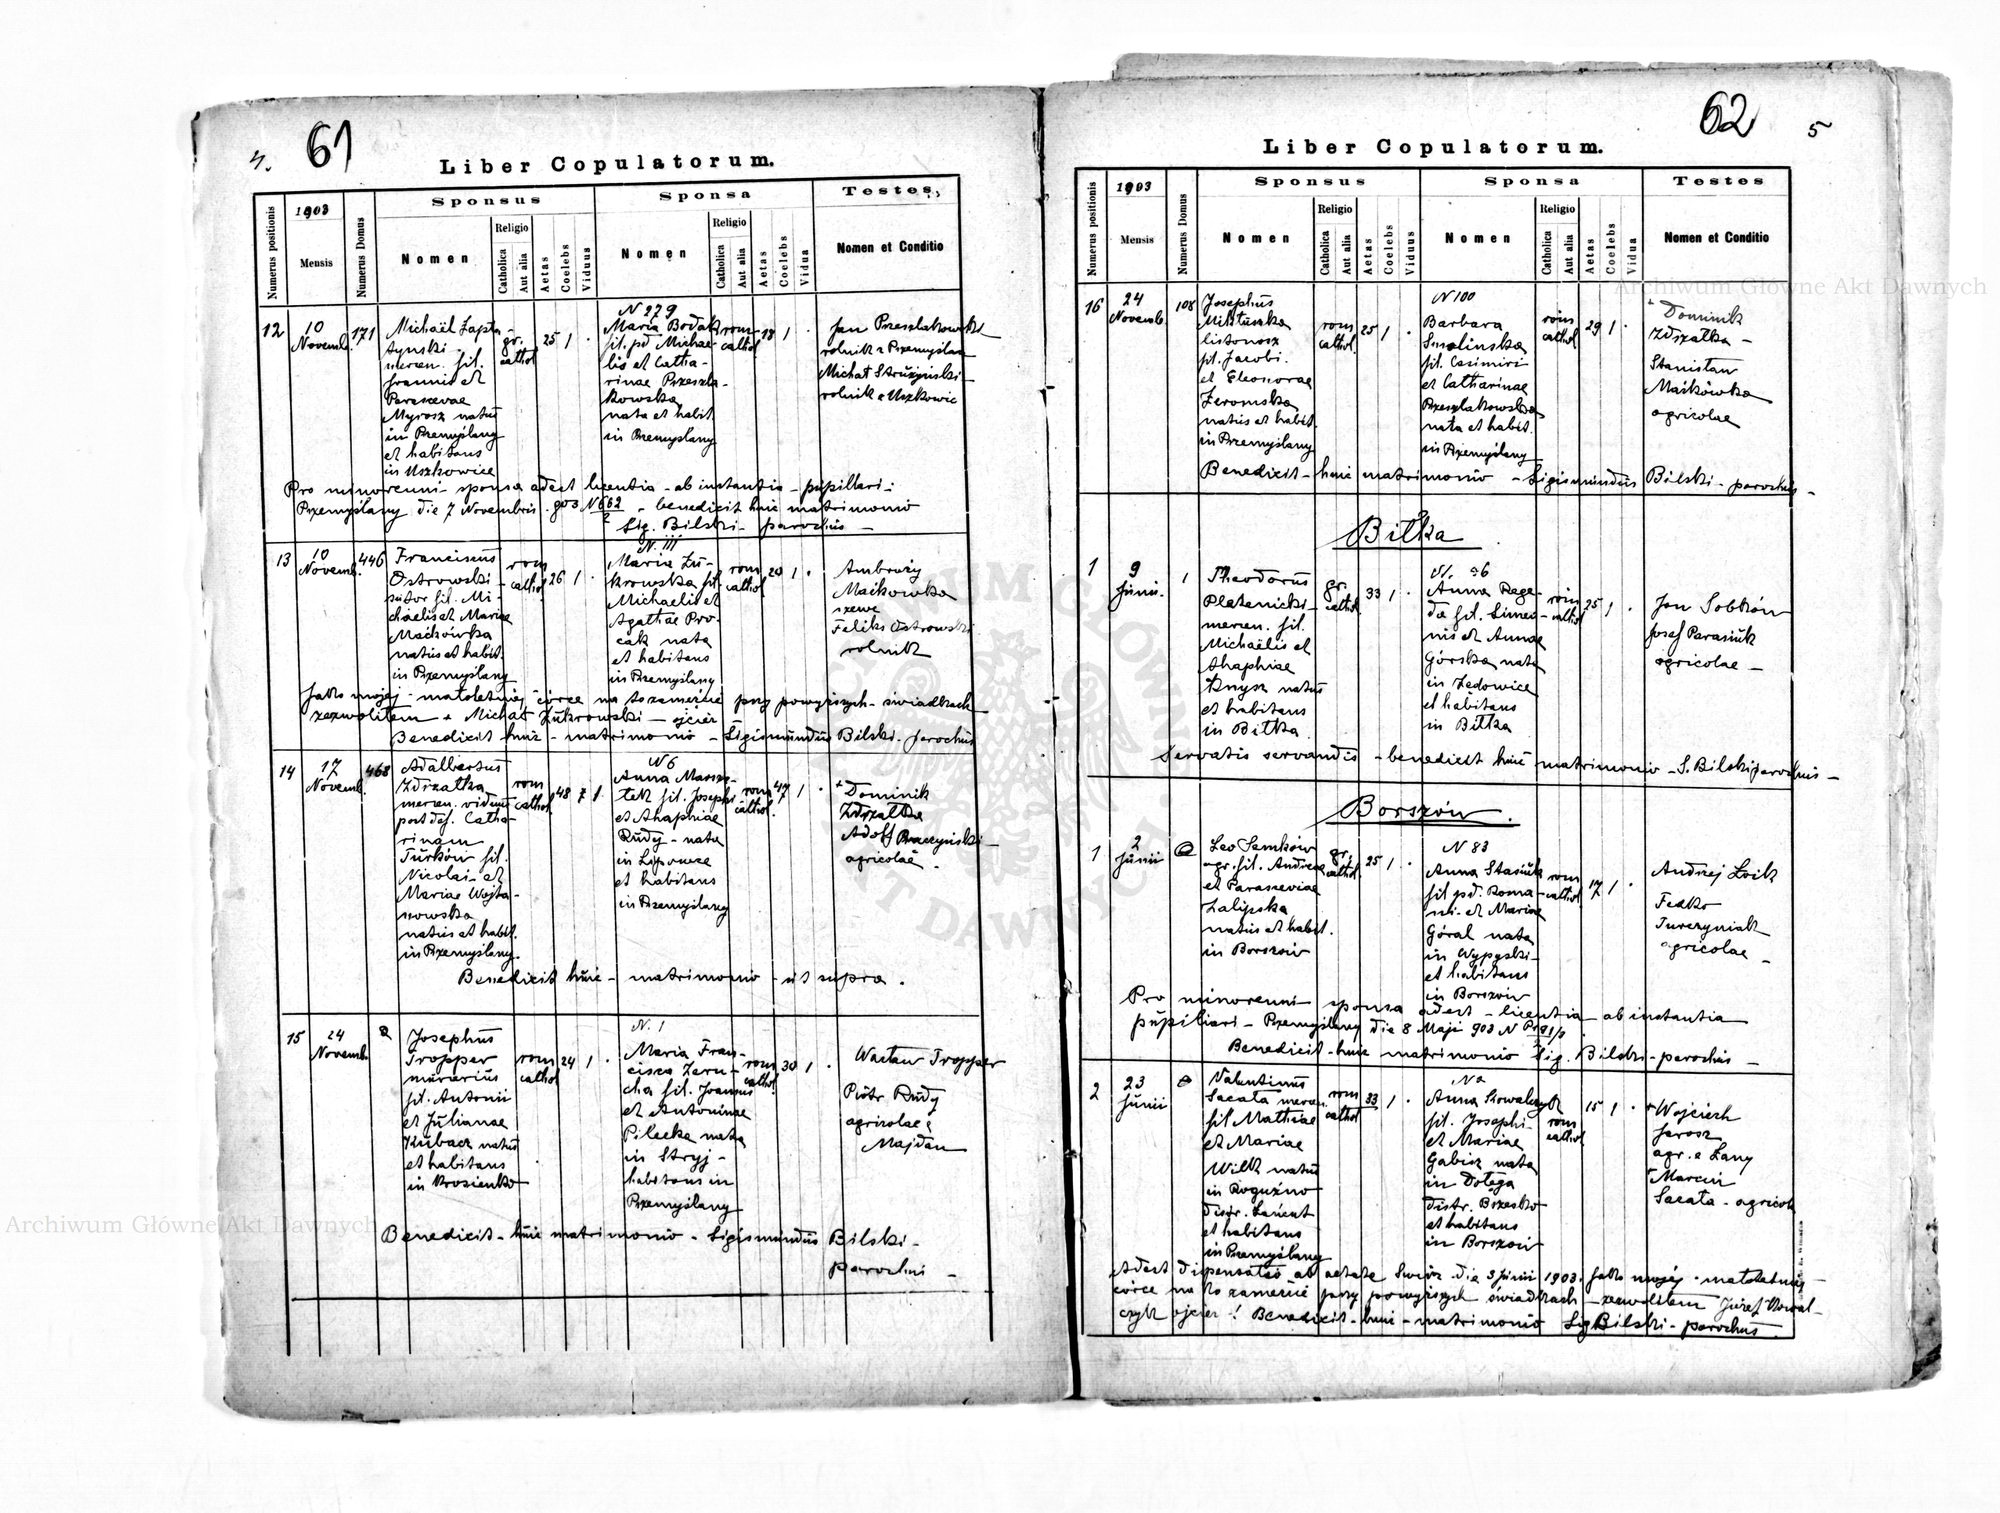 4.
61
Liber Copulatorum.
Numerus positionis
1903
Mensis
Numerus Domus
Sponsus
Nomen
Religio
Catholica
Aut alia
Aetas
Coelebs
Viduus
Sponsa
Nomen
Religio
Catholica
Aut alia
Aetas
Coelebs
Vidua
Testes
Nomen et Conditio
12
10
Novemb.
171
Michaël Zapla-
tynski
mercen. fil.
Joannis et
Parascevae
Myrosz natus
in Przemyślany
et habitans
in Uszkowice
gr.
cathol
25
1
N 279
Maria Bodak
fil. pd Michae-
lis et Catha-
rinae Przeszla-
kowska
nata et habit.
in Przemyslany
rom
cathol
18
1
Jan Przeszlakowski
rolnik z Przemyślan
Michał Struzyński
rolnik z Uszkowic
Pro minorenni sponsa adest licentia ab instantia pupillari
Przemyślany die 7 Novembris 903 N 662/2 - benedicit huic matrimonio
Sig. Bilski - parochus -
13
10
Novemb.
446
Franciscus
Ostrowski
sutor fil. Mi-
chaelis et Mariae
Maćkówka
natus et habit.
in Przemyślany
rom
cathol
26
1
N. 111
Maria Zu-
krowska fil.
Michaelis et
Agathae Pro-
cak nata
et habitans
in Przemyślany
rom
cathol
20
1
Ambroży
Maćkowka
szewc
Feliks Ostrowski
rolnik
Jako mojej małoletniej córce na to zamęście przy powyższych świadkach
zezwoliłem + Michał Żukrowski - ojciec
Benedicit huic - matrimonio - Sigismundus Bilski. parochus
14
17
Novemb.
468
Adalbertus
Zdrzałka
mercen. viduus
post def. Catha-
rinam
Turków fil.
Nicolai et
Mariae Wojta-
nowska
natus et habit.
in Przemyślany.
rom
cathol
48
1
N 6
Anna Massz-
tek fil. Josephi
et Ahaphiae
Rudy - nata
in Lipowce
et habitans
in Przemyślany
rom
cathol
47
1
+ Dominik
Zdrzałka
Adolf Braczyński
agricolae
Benedicit huic - matrimonio - ut supra.
15
24
Novemb.
Josephus
Tropper
murarius
fil. Antonii
et Julianae
Kubacz natus
et habitans
in Krosienko
rom
cathol
24
1
N. 1
Maria Fran-
cisca Zaru-
cha fil. Joannis
et Antoninae
Pilecka nata
in Stryj -
habitans in
Przemyślany
rom
cathol
30
1
Wacław Tropper
Piotr Rudy
agricolae e
Majdan
Benedicit - huic matrimonio - Sigismundus Bilski -
parochus -
62
5
Liber Copulatorum.
Numerus positionis
1903
Mensis
Numerus Domus
Sponsus
Nomen
Religio
Catholica
Aut alia
Aetas
Coelebs
Viduus
Sponsa
Nomen
Religio
Catholica
Aut alia
Aetas
Coelebs
Vidua
Testes
Nomen et Conditio
16
24
Novemb.
108
Josephus
Mikluszka
listonosz
fil. Jacobi
et Eleonorae
Zeromska
natus et habit.
in Przemyślany
rom
cathol.
25
1
N 100
Barbara
Smolinska
fil. Casimiri
et Catharinae
Przeszlakowska
nata et habit.
in Przemyślany
rom
cathol
29
1
+ Dominik
Zdrzałka -
Stanisław
Maćkówka
agricolae
Benedicit - huic matrimonio - Sigismundus Bilski - parochus -
Bitka
1
9
Junii.
1
Theodorus
Platenicki
mercen. fil.
Michaëlis et
Ahaphiae
Knysz natus
et habitans
in Bitka
gr.
cathol
33
1
Anna Raga-
da fil. Simeo-
nis et Annae
Górska nata
in Zędowice
et habitans
in Bitka
rom
cathol
25
1
Jan Sobków
Josef Parasiuk
agricolae -
Servatis servandis - benedicit huic matrimonio - S. Bilski parochus -
Borszów.
1
2
Junii
Leo Semków
agr. fil. Andreae
et Parasceviae
Zalipska
natus et habit.
in Borszów
gr.
cathol
25
1
N 83
Anna Stasiuk
fil pd. Roma-
ni - et Mariae
Góral nata
in Wypyski
et habitans
in Borszów
rom
cathol
17
1
Andrzej Łoik
Fedko
Tureczyniak
agricolae -
Pro minorenni sponsa adest - licentia ab instantia
pupillari - Przemyślany die 8 Maji 903
Benedicit - huic matrimonio Sig. Bilski - parochus -
2
23
Junii
Valentinus
Sacała mercen.
fil Mathiae
et Mariae
Wilk natus
in Roguźno
distr. Łańcut
et habitans
in Przemyślany
rom
cathol
33
1
Anna Kowalczyk
fil. Josephi
et Mariae
Gabisz nata
in Dołęga
distr. Brzesko
et habitans
in Borszów
rom
cathol
15
1
+ Wojciech
Jarosz
agr. e Łany
+ Marcin
Sacała - agricola
Adest dispensatio ab aetate Świrz die 3 Junii 1903. Jako mojej - małoletniej -
córce na to zamęście przy powyższych świadkach - zezwoliłem Józef Kowal-
czyk ojciec! Benedicit - huic - matrimonio Sig Bilski - parochus.
Archiwum Główne Akt Dawnych
Archiwum Główne Akt Dawnych
ARCHIWUM GŁÓWNE
AKT DAWNYCH